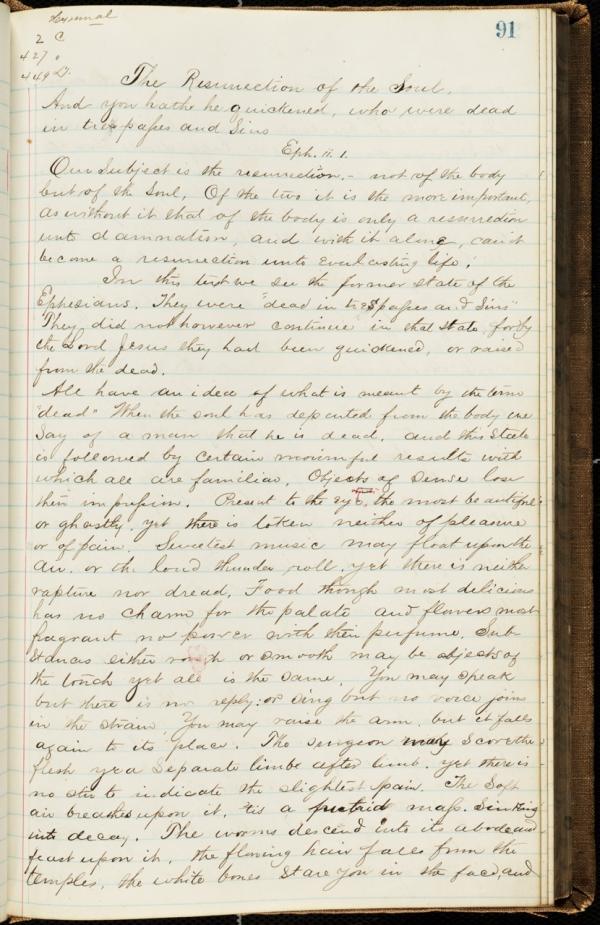 Hymnal
91
2 C
427 "
449 D.
The Resurrection of the Soul.
And you hath he quickened, who were dead
in trespasses and Sins
Eph. ii. 1.
Our Subject is the resurrection, - not of the body
but of the Soul. Of the two it is the more important,
as without it that of the body is only a resurrection
unto damnation, and with it alone, can it
become a resurrection unto Everlasting life.
In this text we see the former state of the
Ephesians. They were "dead in trespasses and Sins"
They did not however continue in that state, for by
the Lord Jesus they had been quickened, or raised
from the dead.
All have an idea of what is meant by the term
"dead" When the soul has departed from the body we
Say of a man that he is dead. and this State
is followed by certain mournful results with
which all are familiar. Objects of Sense lose
their impression. Present to the eye, the most beautiful
or ghostly. yet there is token neither of pleasure
or of pain. Sweetest music may float upon the
air. or the loud thunder roll, yet there is neither
rapture nor dread. Food though most delicious
has no charm for the palate and flowers most
fragrant no power with their perfume. Sub
stances either rough or smooth may be objects of
the touch yet all is the same. You may speak
but there is no reply: or sing but no voice joins
in the strain. You may raise the arm, but it falls
again to its place. The surgeon may Score the
flesh yea Separate limb after limb. yet there is
no to indicate the slightest pain. The Soft
air breathes upon it, 'tis a putrid mass. Sinking
into decay. The worms descend into its abode and
feast upon it, the flowing hair falls from the
temples, the white bones stare you in the face, and